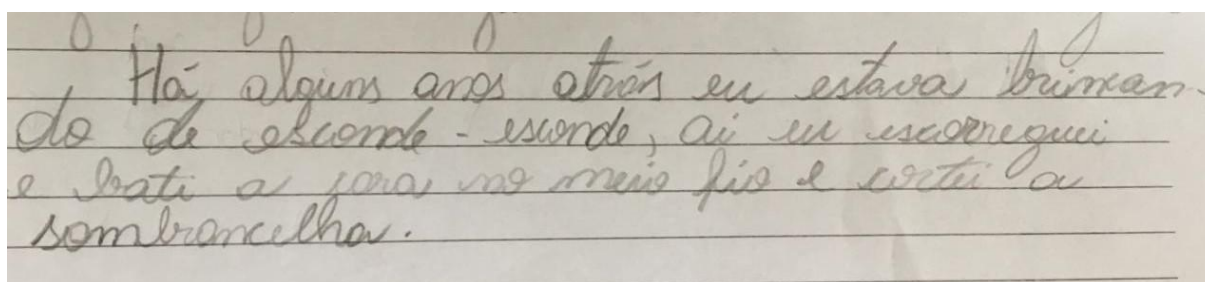 Há alguns anos atrás eu estava brincan-
do de esconde-esconde, ai eu escorreguei
e bati a cara no meio fio e cortei a
sombrancelha.